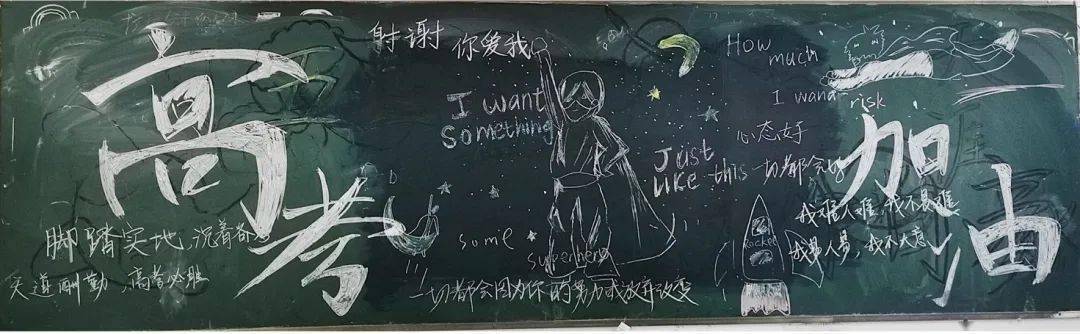 高考
加油
射谢 你爱我
How much
I wana risk
I want
Something
Just
Like this
心态好
一切都会好
脚踏实地,沉着奋
天道酬勤,高考必胜
some
superhero
Rocket
我难人难,我不畏难
我易人易,我不大意
一切都会因为你的努力或放弃改变